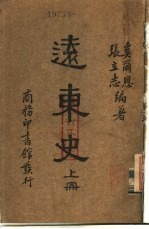 奚爾恩
張立志編著
遠東史
上冊
商務印書館發行